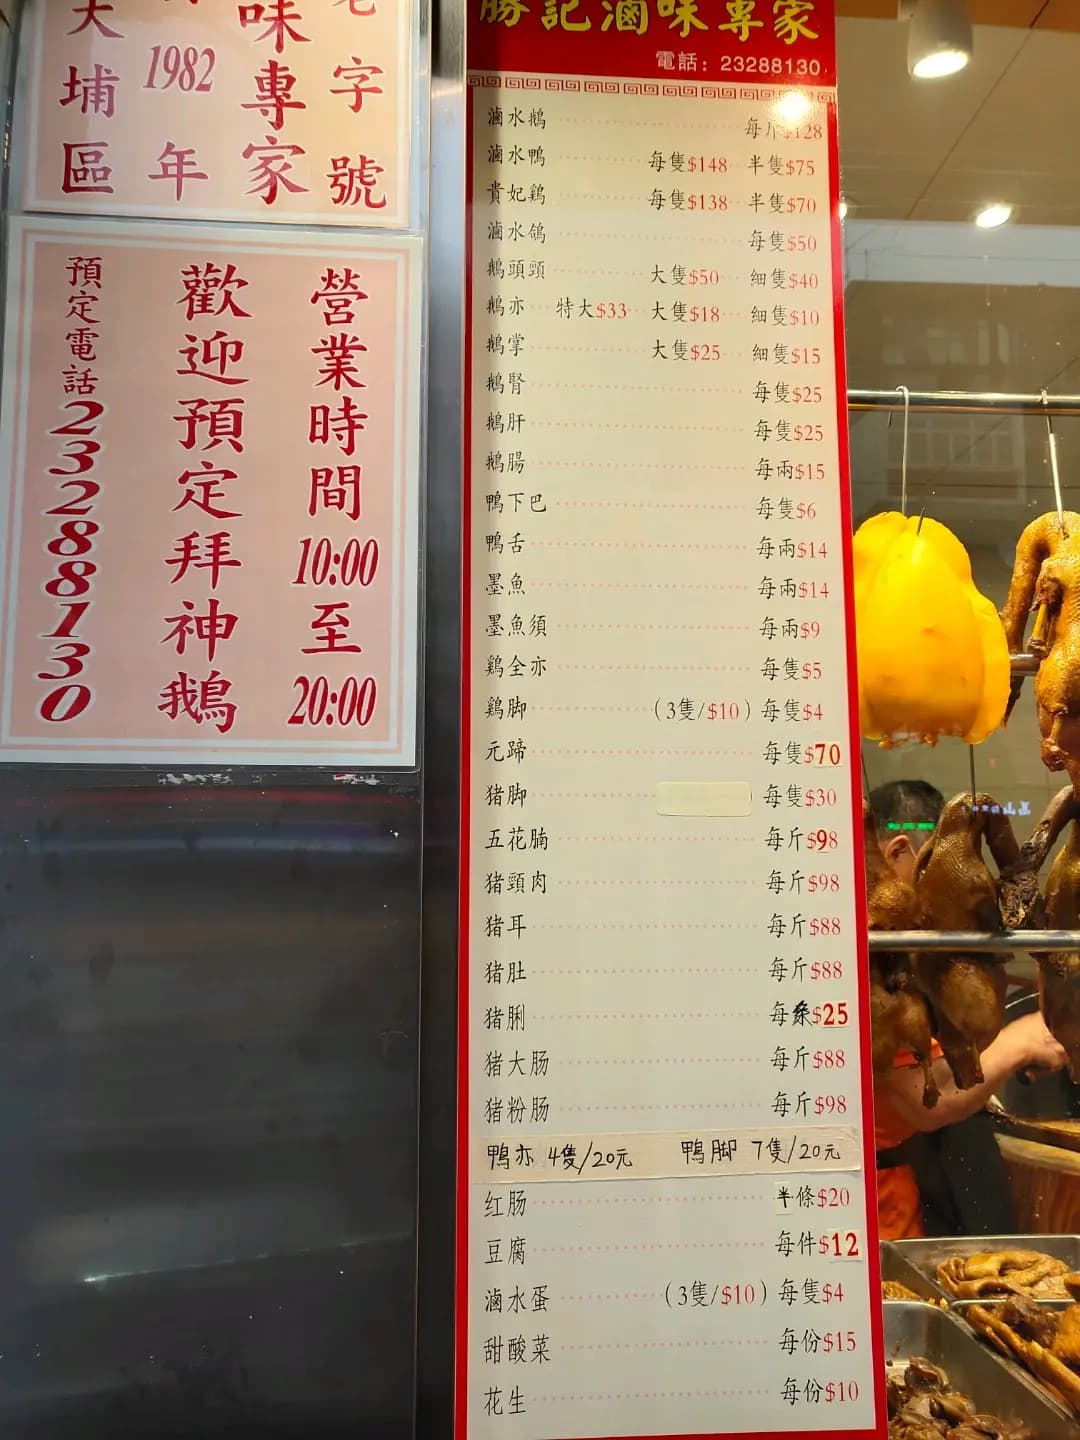 大埔區
1982年
味專家
老字號
營業時間10:00至20:00
歡迎預定拜神鵝
預定電話23288130
勝記滷味專家
電話：23288130
滷水鵝 每斤$128
滷水鴨 每隻$148 半隻$75
貴妃鷄 每隻$138 半隻$70
滷水鴿 每隻$50
鵝頭頸 大隻$50 細隻$40
鵝亦 特大$33 大隻$18 細隻$10
鵝掌 大隻$25 細隻$15
鵝腎 每隻$25
鵝肝 每隻$25
鵝腸 每兩$15
鴨下巴 每隻$6
鴨舌 每兩$14
墨魚 每兩$14
墨魚須 每兩$9
鷄全亦 每隻$5
鷄脚 (3隻/$10) 每隻$4
元蹄 每隻$70
猪脚 每隻$30
五花腩 每斤$98
猪頸肉 每斤$98
猪耳 每斤$88
猪肚 每斤$88
猪脷 每条$25
猪大肠 每斤$88
猪粉肠 每斤$98
鴨亦 4隻/20元 鴨脚 7隻/20元
红肠 半條$20
豆腐 每件$12
滷水蛋 (3隻/$10) 每隻$4
甜酸菜 每份$15
花生 每份$10